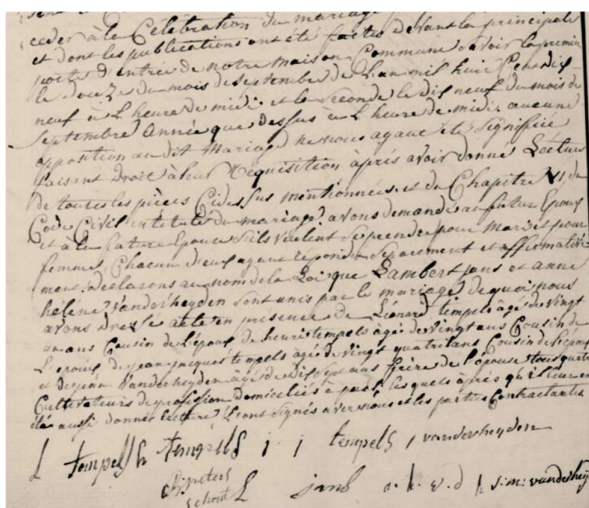 céder à la Célébration du mariage
et dont les publications ont été faites devant la principale
porte d'entrée de notre maison Commune savoir la premier
le douze du mois de septembre de L'an mil huit Cent dix
neuf à L'heure de midi et la seconde le dix neuf du mois de
septembre année que dessus à L'heure de midi aucune
opposition au dit Mariage ne nous ayant été signifiée
faisant droit à leur Requisition après avoir donné Lecture
de toutes les pièces Ci dessus mentionnées et du Chapitre VI du
Code Civil intitulé du mariage, avons demandé au futur Epoux
et à la future Epouse s'ils veulent se prendre pour Mari et pour
femme, Chacun d'eux ayant répondu séparément et affirmative
ment, déclarons au nom de la Loi que Lambert jans et anne
hélène Vanderheyden sont unis par le mariage, de quoi nous
avons dressé acte en présence de Léonard tempels âgé de vingt
un ans Cousin de L'epoux de henri tempels âgé de vingt ans Cousin de
L'epoux de jean jacques tempels âgé de vingt quatre ans Cousin de l'epoux
et de jean Vanderheyden âgé de dix sept ans frère de l'epouse tous quatre
Cultivateurs de profession domiciliés à les quels après qu'il leur en
été aussi donné lecture L'ont signés avec nous et les parties Contractantes
L tempels h tempels j j tempels j vanderheyden
peters
L jans a. h. v. d h j. m. vanderhey